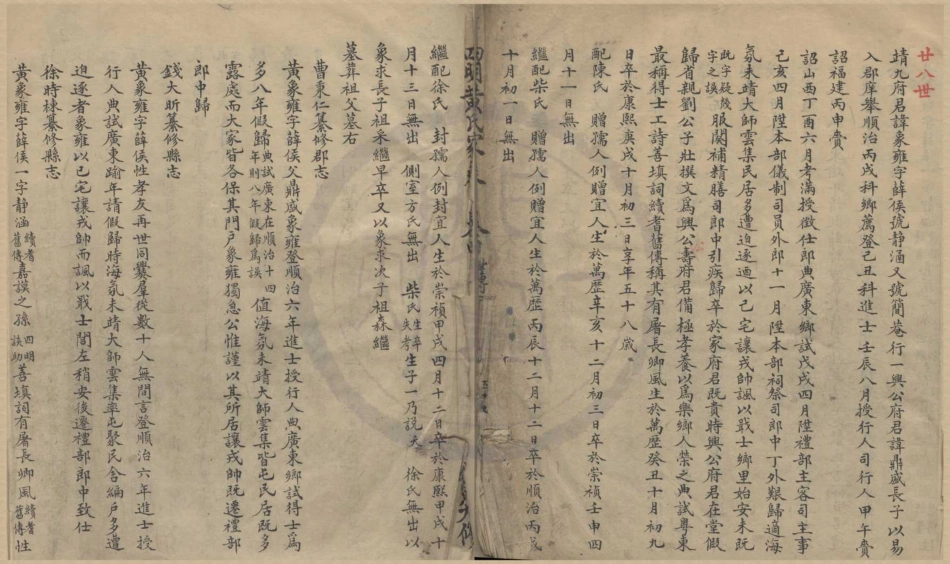 廿八世
靖九府君諱象雍字薛侯號静涵又號簡菴行一興公府君諱鼎盛長子以易
入郡庠舉順治丙戌科鄉薦登己丑科進士壬辰八月授行人司行人甲午賫
詔福建丙申賫
詔山西丁酉六月考滿授徵仕郎典廣東鄉試戊戌四月陞禮部主客司主事
己亥四月陞本部儀制司員外郎十一月陞本部祠祭司郎中丁外艱歸適海
氛未靖大師雲集民居多遭迫逐迺以己宅讓戎帥諷以戢士鄉里始安未既
既字疑幾字之誤服闋補精膳司郎中引疾歸卒於家府君既貴時興公府君在堂假
歸省親劉公子壯撰文為興公壽府君備極孝養以為樂鄉人榮之典試粵東
最稱得士工詩善填詞續耆舊傳稱其有屠長卿風生於萬歷癸丑十月初九
日卒於康熙庚戌十月初三日享年五十八歲
配陳氏 贈孺人例贈宜人生於萬歷辛亥十二月初三日卒於崇禎壬申四
月十一日無出
繼配柴氏 贈孺人例贈宜人生於萬歷丙辰十二月十二日卒於順治丙戌
十月初一日無出
四明黃氏家
繼配徐氏 封孺人例封宜人生於崇禎甲戌四月十二日卒於康熙甲戌十
月十三日無出 側室方氏無出 柴氏生卒失考生子一乃說夭 徐氏無出以
象求長子祖釆繼早卒又以象求次子祖森繼
墓葬祖父墓右
曹秉仁纂修郡志
黃象雍字薛侯父鼎盛象雍登順治六年進士授行人典廣東鄉試得士為
多八年假歸典試廣東在順治十四年則八年假歸為誤值海氛未靖大師雲集皆屯民居既多
露處而大家皆各保其門户象雍獨急公惟謹以其所居讓戎帥既遷禮部
郎中歸
錢大昕纂修縣志
黃象雍字薛侯性孝友再世同爨羣從數十人無間言登順治六年進士授
行人典試廣東踰年請假歸時海氛未靖大師雲集率屯聚民舍編户多遭
迫逐者象雍以己宅讓戎帥而諷以戢士閭左稍安後遷禮部郎中致仕
徐時棟纂修縣志
黃象雍字薛侯一字静涵續耆舊傳嘉謨之孫四明談助善填詞有屠長卿風續耆舊傳性